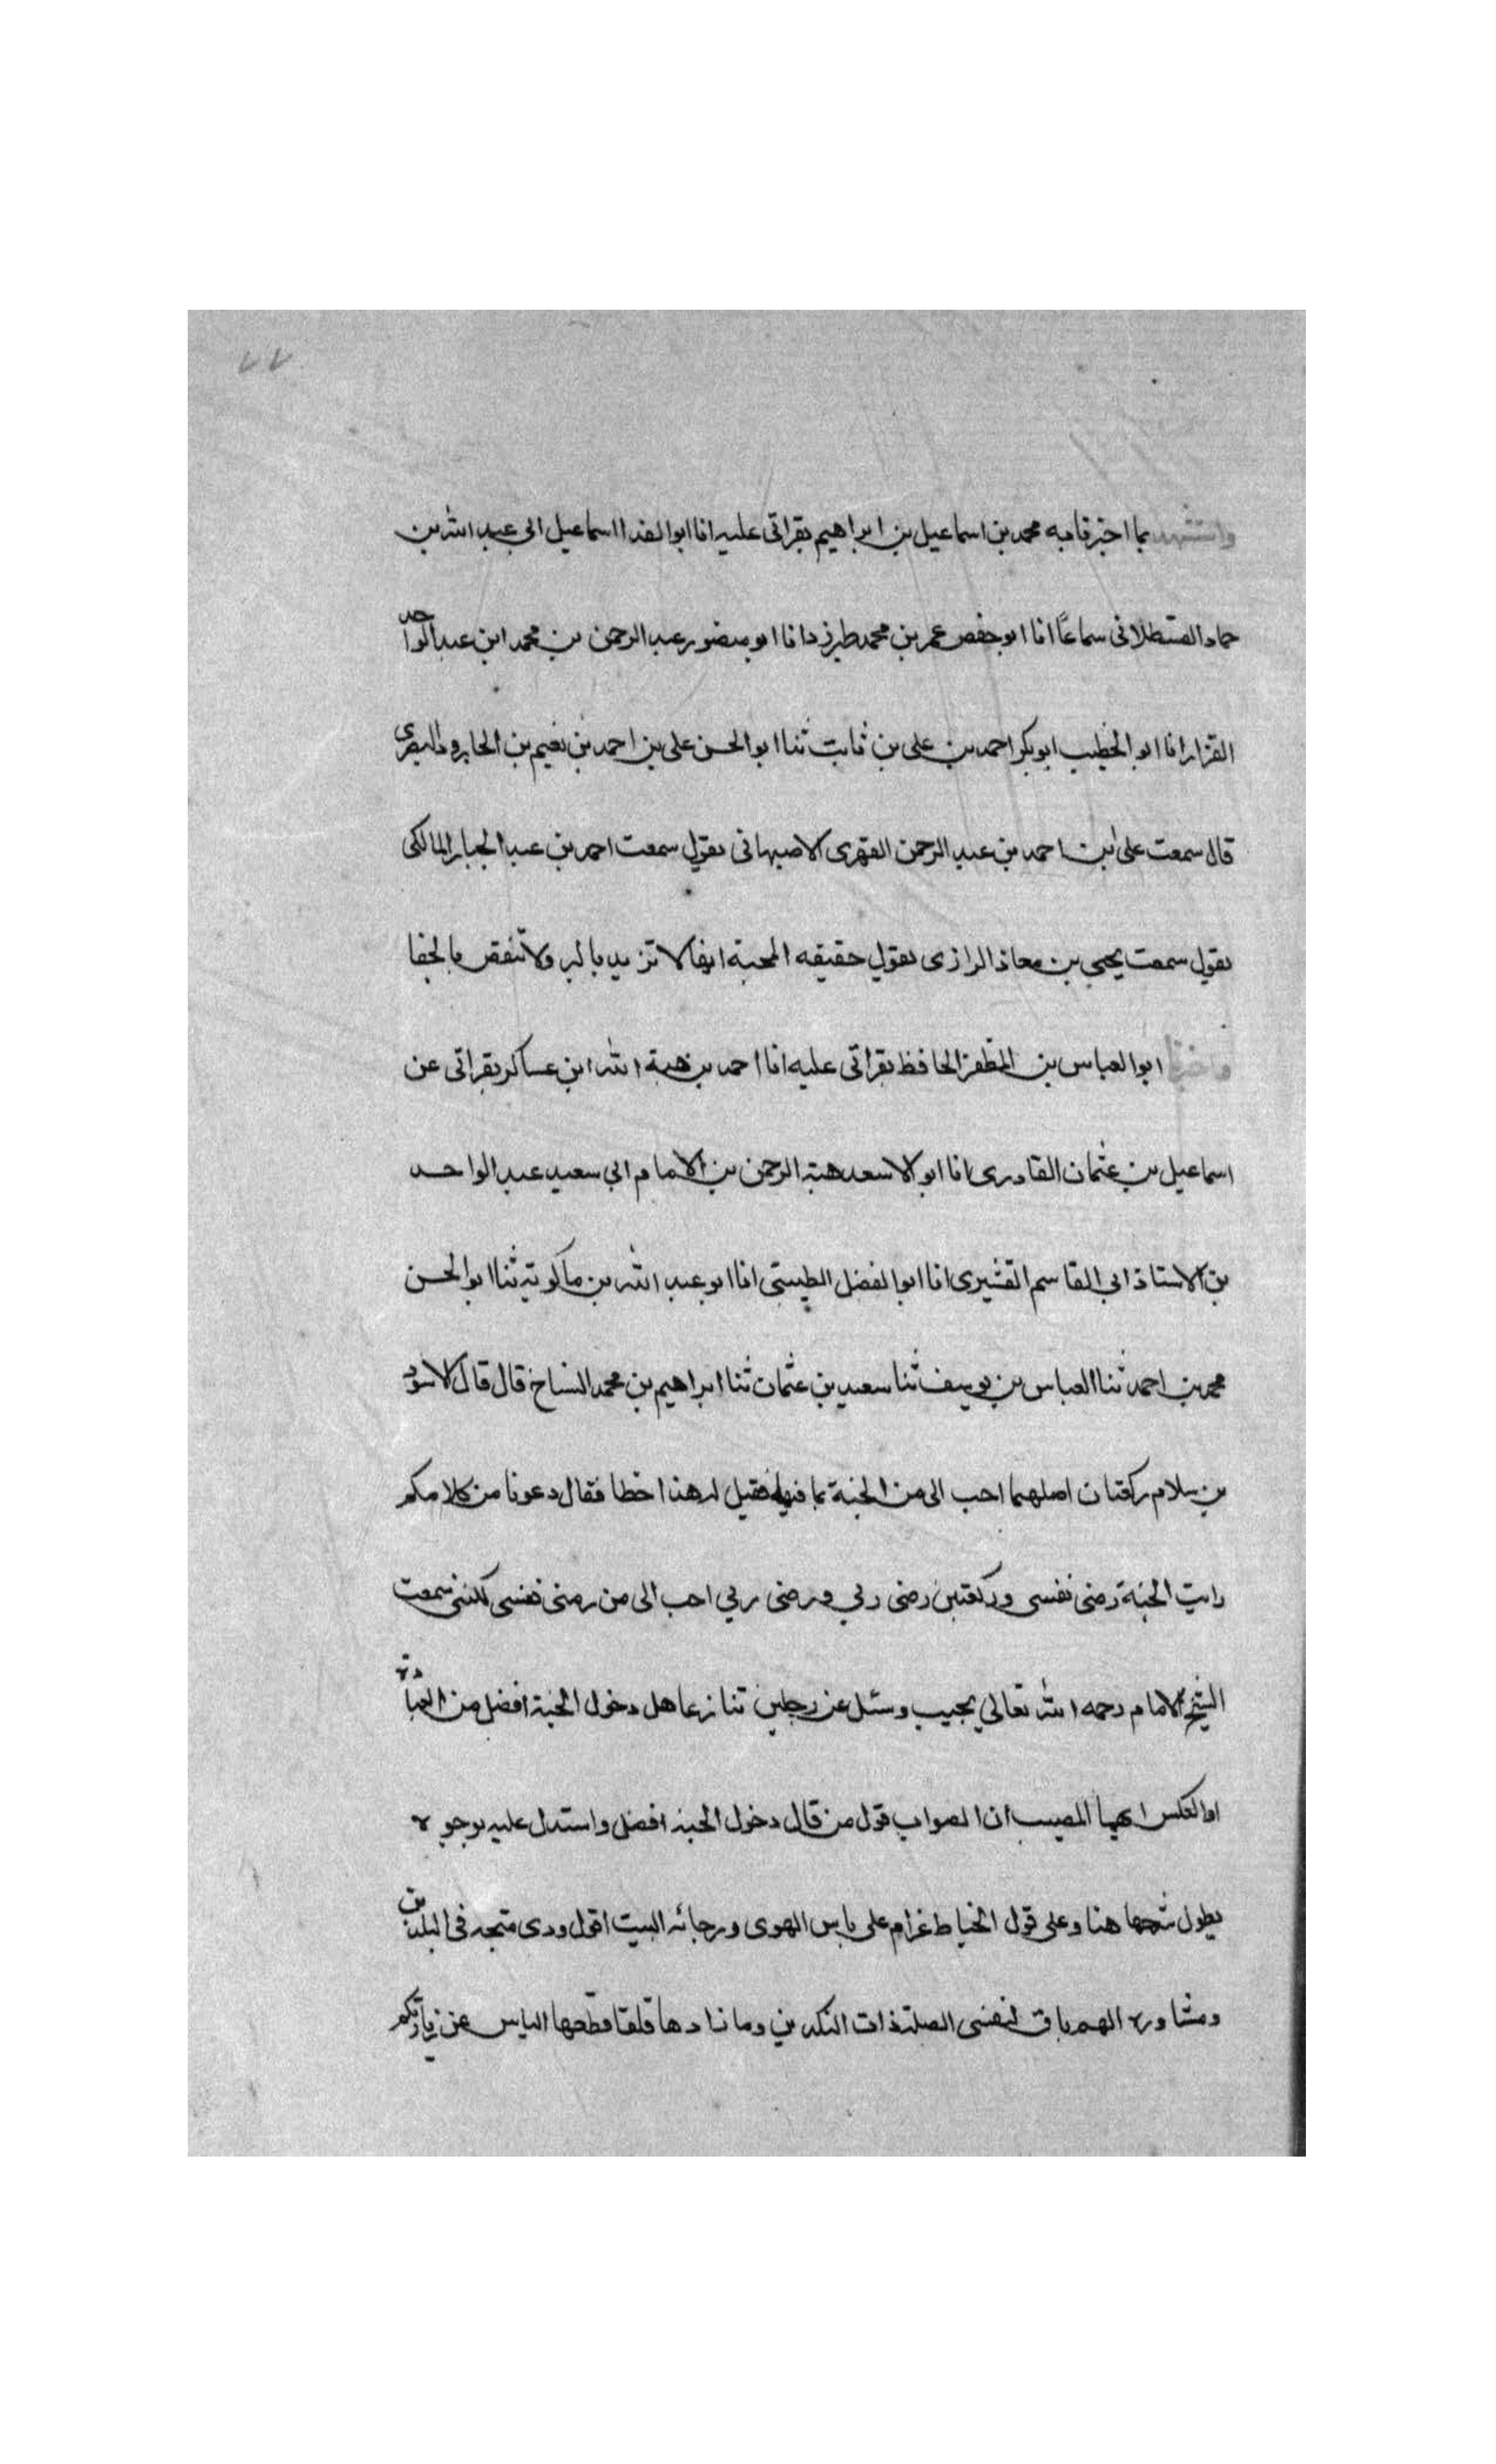 ٧٧
واستشهد بما اخبرنا به محمد بن اسماعيل بن ابراهيم بقراتى عليه انا ابوا الفدا اسماعيل ابى عبد الله بن
حماد العسقلانى سماعًا انا ابو حفص عمر بن محمد طبرزد انا ابو منصور عبد الرحمن بن محمد ابن عبد الواحد
القزاز انا ابو الخطيب ابو بكر احمد بن على بن ثابت ثنا ابو الحسن على بن احمد بن نعيم بن الجارود البصرى
قال سمعت على بن احمد بن عبد الرحمن الفهرى الاصبهانى يقول سمعت احمد بن عبد الجبار المالكى
يقول سمعت يحيى بن معاذ الرازى يقول حقيقه المحبة انها لا تزيد بالبر ولا تنقص بالجفا
واخبرنا ابوا لعباس بن المظفر الحافظ بقراتى عليه انا احمد بن هبة الله ابن عساكر بقراتى عن
اسماعيل بن عثمان القادرى انا ابو الاسعد هبة الرحمن بن الامام ابى سعيد عبد الواحد
بن الاستاذ ابى القاسم القشيرى انا ابوا لفضل الطبسى انا ابو عبد الله بن ماكوية ثنا ابو الحسن
محمد بن احمد ثنا العباس بن يوسف ثنا سعيد بن عثمان ثنا ابراهيم بن محمد النساخ قال قال الاسود
بن سلام ركعتان اصليهما احب الى من الجنة بما فيها فقيل له هذا خطا فقال دعونا من كلامكم
رايت الجنة رضى نفسى وركعتين رضى ربى ورضى ربى احب الى من رضى نفسى لكننى سمعت
الشيخ الامام رحمه الله تعالى يجيب وسئل عن رجلين تنازعا هل دخول الجنة افضل من العبادة
او العكس ايهما المصيب ان الصواب قول من قال دخول الجنة افضل واستدل عليه بوجوه
يطول شرحها هنا وعلى قول الخياط غرام على ياس الهوى ورجائه البيت اقول ودى متجه فى البلدين
ومشاوره الهم باق لنفسى ذات النكد بن وما زادها قلقا قطعها الياس عن زيارتكم